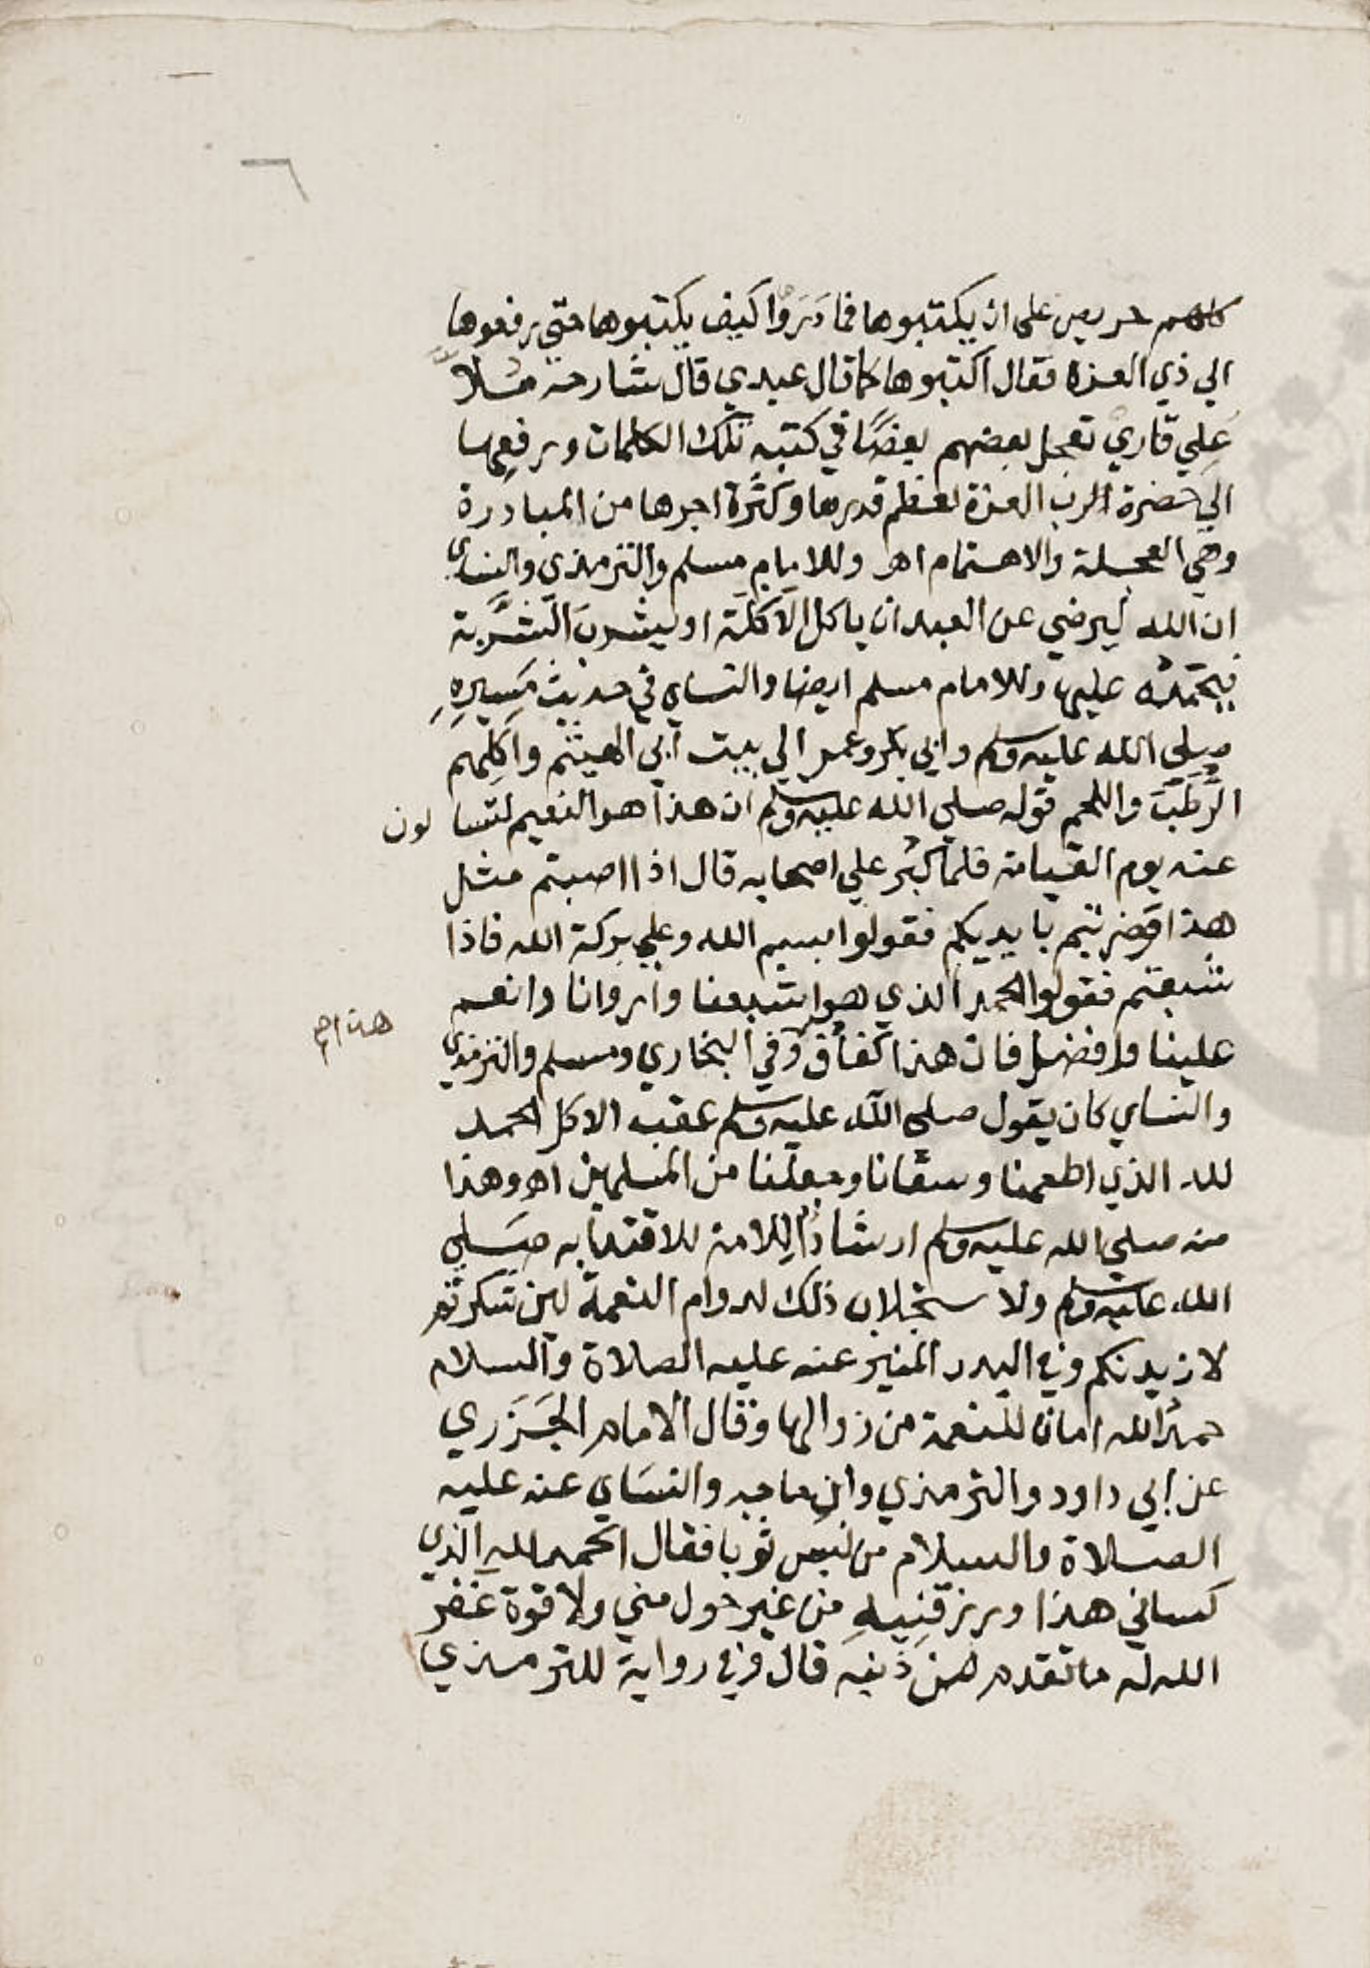 كلهم حريص على ان يكتبوها فما دَرَوْا كيف يكتبوها حتي رفعوها
الي ذي العزة فقال اكتبوها كما قال عبدي قال شارحه منلا
عَلِي قاري تعجل بعضهم بعضًا في كتبه تلك الكلمات ورفعها
الي حضرة الرب العزة لعظم قدرها وكثرة اجرها من المبادرة
وهي العجلة والاهتمام اهـ وللامام مسلم والترمذي والنساي
ان الله ليرضي عن العبد ان ياكل الاَكلَة او يشربَ الشَّربة
فيحمدُه عليها وللامام مسلم ايضا والنساي في حديث مَسِيرِهِ
صلى الله عليه وسلم وابي بكر وعمر الي بيت ابي الهيثم واكلِهم
الرُّطَبَ واللحم قوله صلي الله عليه وسلم ان هذا هو النعيم لتسا لون
عنه يوم القيامة فلما كبُر علي اصحابه قال اذا اصبتم مثل
هذا فضربتم بايديكم فقولوا بسم الله وعلي بركة الله فاذا
شبعتم فقولوا الحمد الذي هو اشبعنا واروانا وانعم
علينا وافضل فان هذا كفأفٌ وفي البخاري ومسلم والترمذي
والنساي كان يقول صلي الله عليه وسلم عقبه الاكل الحمد
لله الذي اطعمنا وسقانا وجعلنا من المسلمين اهـ وهذا
منه صلي الله عليه وسلم ارشادٌ للامة للاقتدا به صَلي
الله عليه وسلم ولا ستجلاب ذلك لدوام النعمة لين شكرتم
لازيدنكم وفي البدر المنير عنه عليه الصلاة والسلام
حمدُ الله امان للنعمة من زوالها وقال الامام الجَزَري
عن ابي داود والترمذي وابن ماجه والنسَاي عنه عليه
الصلاة والسلام من لبس ثوبا فقال الحمد للهِ الذي
كساني هذا ورزقنِيهِ من غير حول مني ولا قوة غفر
الله له ما تقدم من ذنبه قال وفي رواية للترمذي